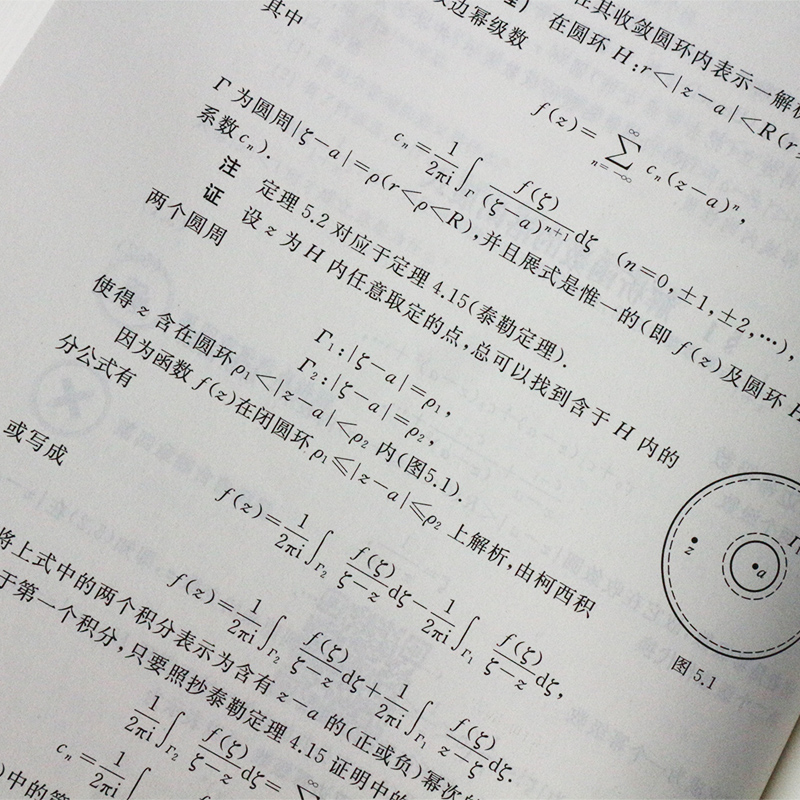 在其收敛圆环内表示一解析
双边幂级数
在圆环 H:r<|z-a|<R(r≥
其中
f(z)=∑_{n=-∞}^{∞} c_n(z-a)^n,
c_n=\frac{1}{2πi}∫_Γ \frac{f(ζ)}{(ζ-a)^{n+1}}dζ (n=0,±1,±2,…),
Γ为圆周|ζ-a|=ρ(r<ρ<R),并且展式是惟一的(即 f(z)及圆环 H
系数c_n).
注 定理 5.2 对应于定理 4.15(泰勒定理).
证 设 z 为 H 内任意取定的点,总可以找到含于 H 内的
两个圆周
Γ_1:|ζ-a|=ρ_1,
Γ_2:|ζ-a|=ρ_2,
使得 z 含在圆环ρ_1<|z-a|<ρ_2 内(图5.1).
因为函数 f(z)在闭圆环 ρ_1≤|z-a|≤ρ_2 上解析,由柯西积
分公式有
f(z)=\frac{1}{2πi}∫_{Γ_2} \frac{f(ζ)}{ζ-z}dζ-\frac{1}{2πi}∫_{Γ_1} \frac{f(ζ)}{ζ-z}dζ,
或写成
f(z)=\frac{1}{2πi}∫_{Γ_2} \frac{f(ζ)}{ζ-z}dζ+\frac{1}{2πi}∫_{Γ_1} \frac{f(ζ)}{z-ζ}dζ.
将上式中的两个积分表示为含有 z-a 的(正或负)幂次的
于第一个积分,只要照抄泰勒定理 4.15 证明中的
\frac{1}{2πi}∫_{Γ_2} \frac{f(ζ)}{ζ-z}dζ=∑^{∞}
c_n=\frac{1}{2πi}∫
z
a
Γ
图 5.1